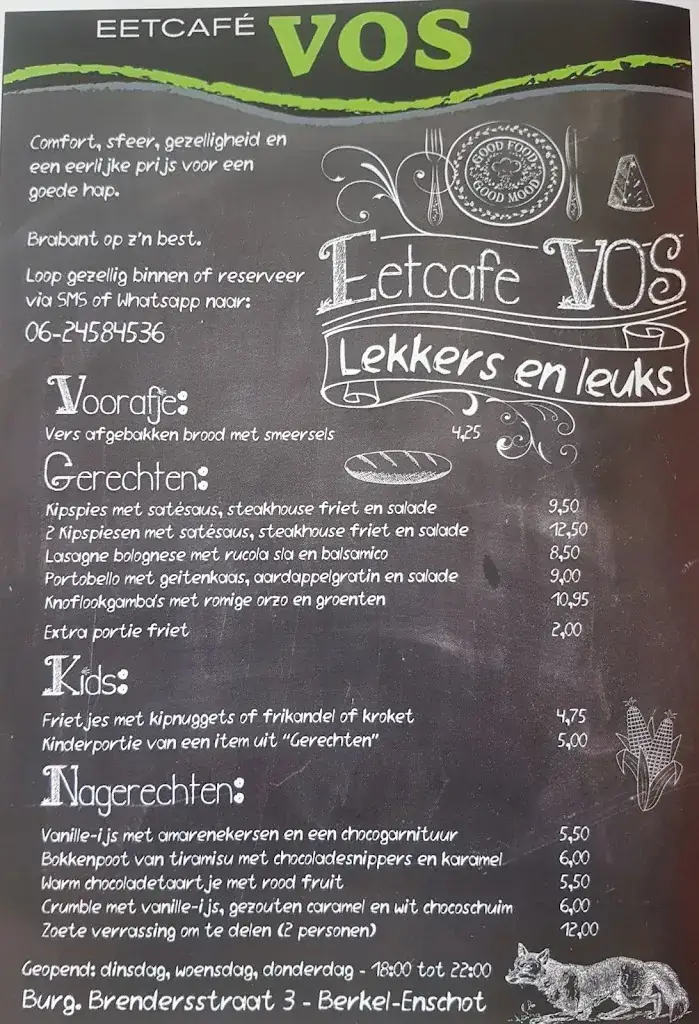 EETCAFÉ VOS
Comfort, sfeer, gezelligheid en
een eerlijke prijs voor een
goede hap.
Brabant op z'n best.
Loop gezellig binnen of reserveer
via SMS of Whatsapp naar:
06-24584536
GOOD FOOD
GOOD MOOD
Eetcafe VOS
Lekkers en leuks
Voorafje:
Vers afgebakken brood met smeersels 4,25
Gerechten:
Kipspies met satésaus, steakhouse friet en salade 9,50
2 Kipspiesen met satésaus, steakhouse friet en salade 12,50
Lasagne bolognese met rucola sla en balsamico 8,50
Portobello met geitenkaas, aardappelgratin en salade 9,00
Knoflookgamba's met romige orzo en groenten 10,95
Extra portie friet 2,00
Kids:
Frietjes met kipnuggets of frikandel of kroket 4,75
Kinderportie van een item uit "Gerechten" 5,00
Nagerechten:
Vanille-ijs met amarenekersen en een chocogarnituur 5,50
Bokkenpoot van tiramisu met chocoladesnippers en karamel 6,00
Warm chocoladetaartje met rood fruit 5,50
Crumble met vanille-ijs, gezouten caramel en wit chocoschuim 6,00
Zoete verrassing om te delen (2 personen) 12,00
Geopend: dinsdag, woensdag, donderdag - 18:00 tot 22:00
Burg. Brendersstraat 3 - Berkel-Enschot